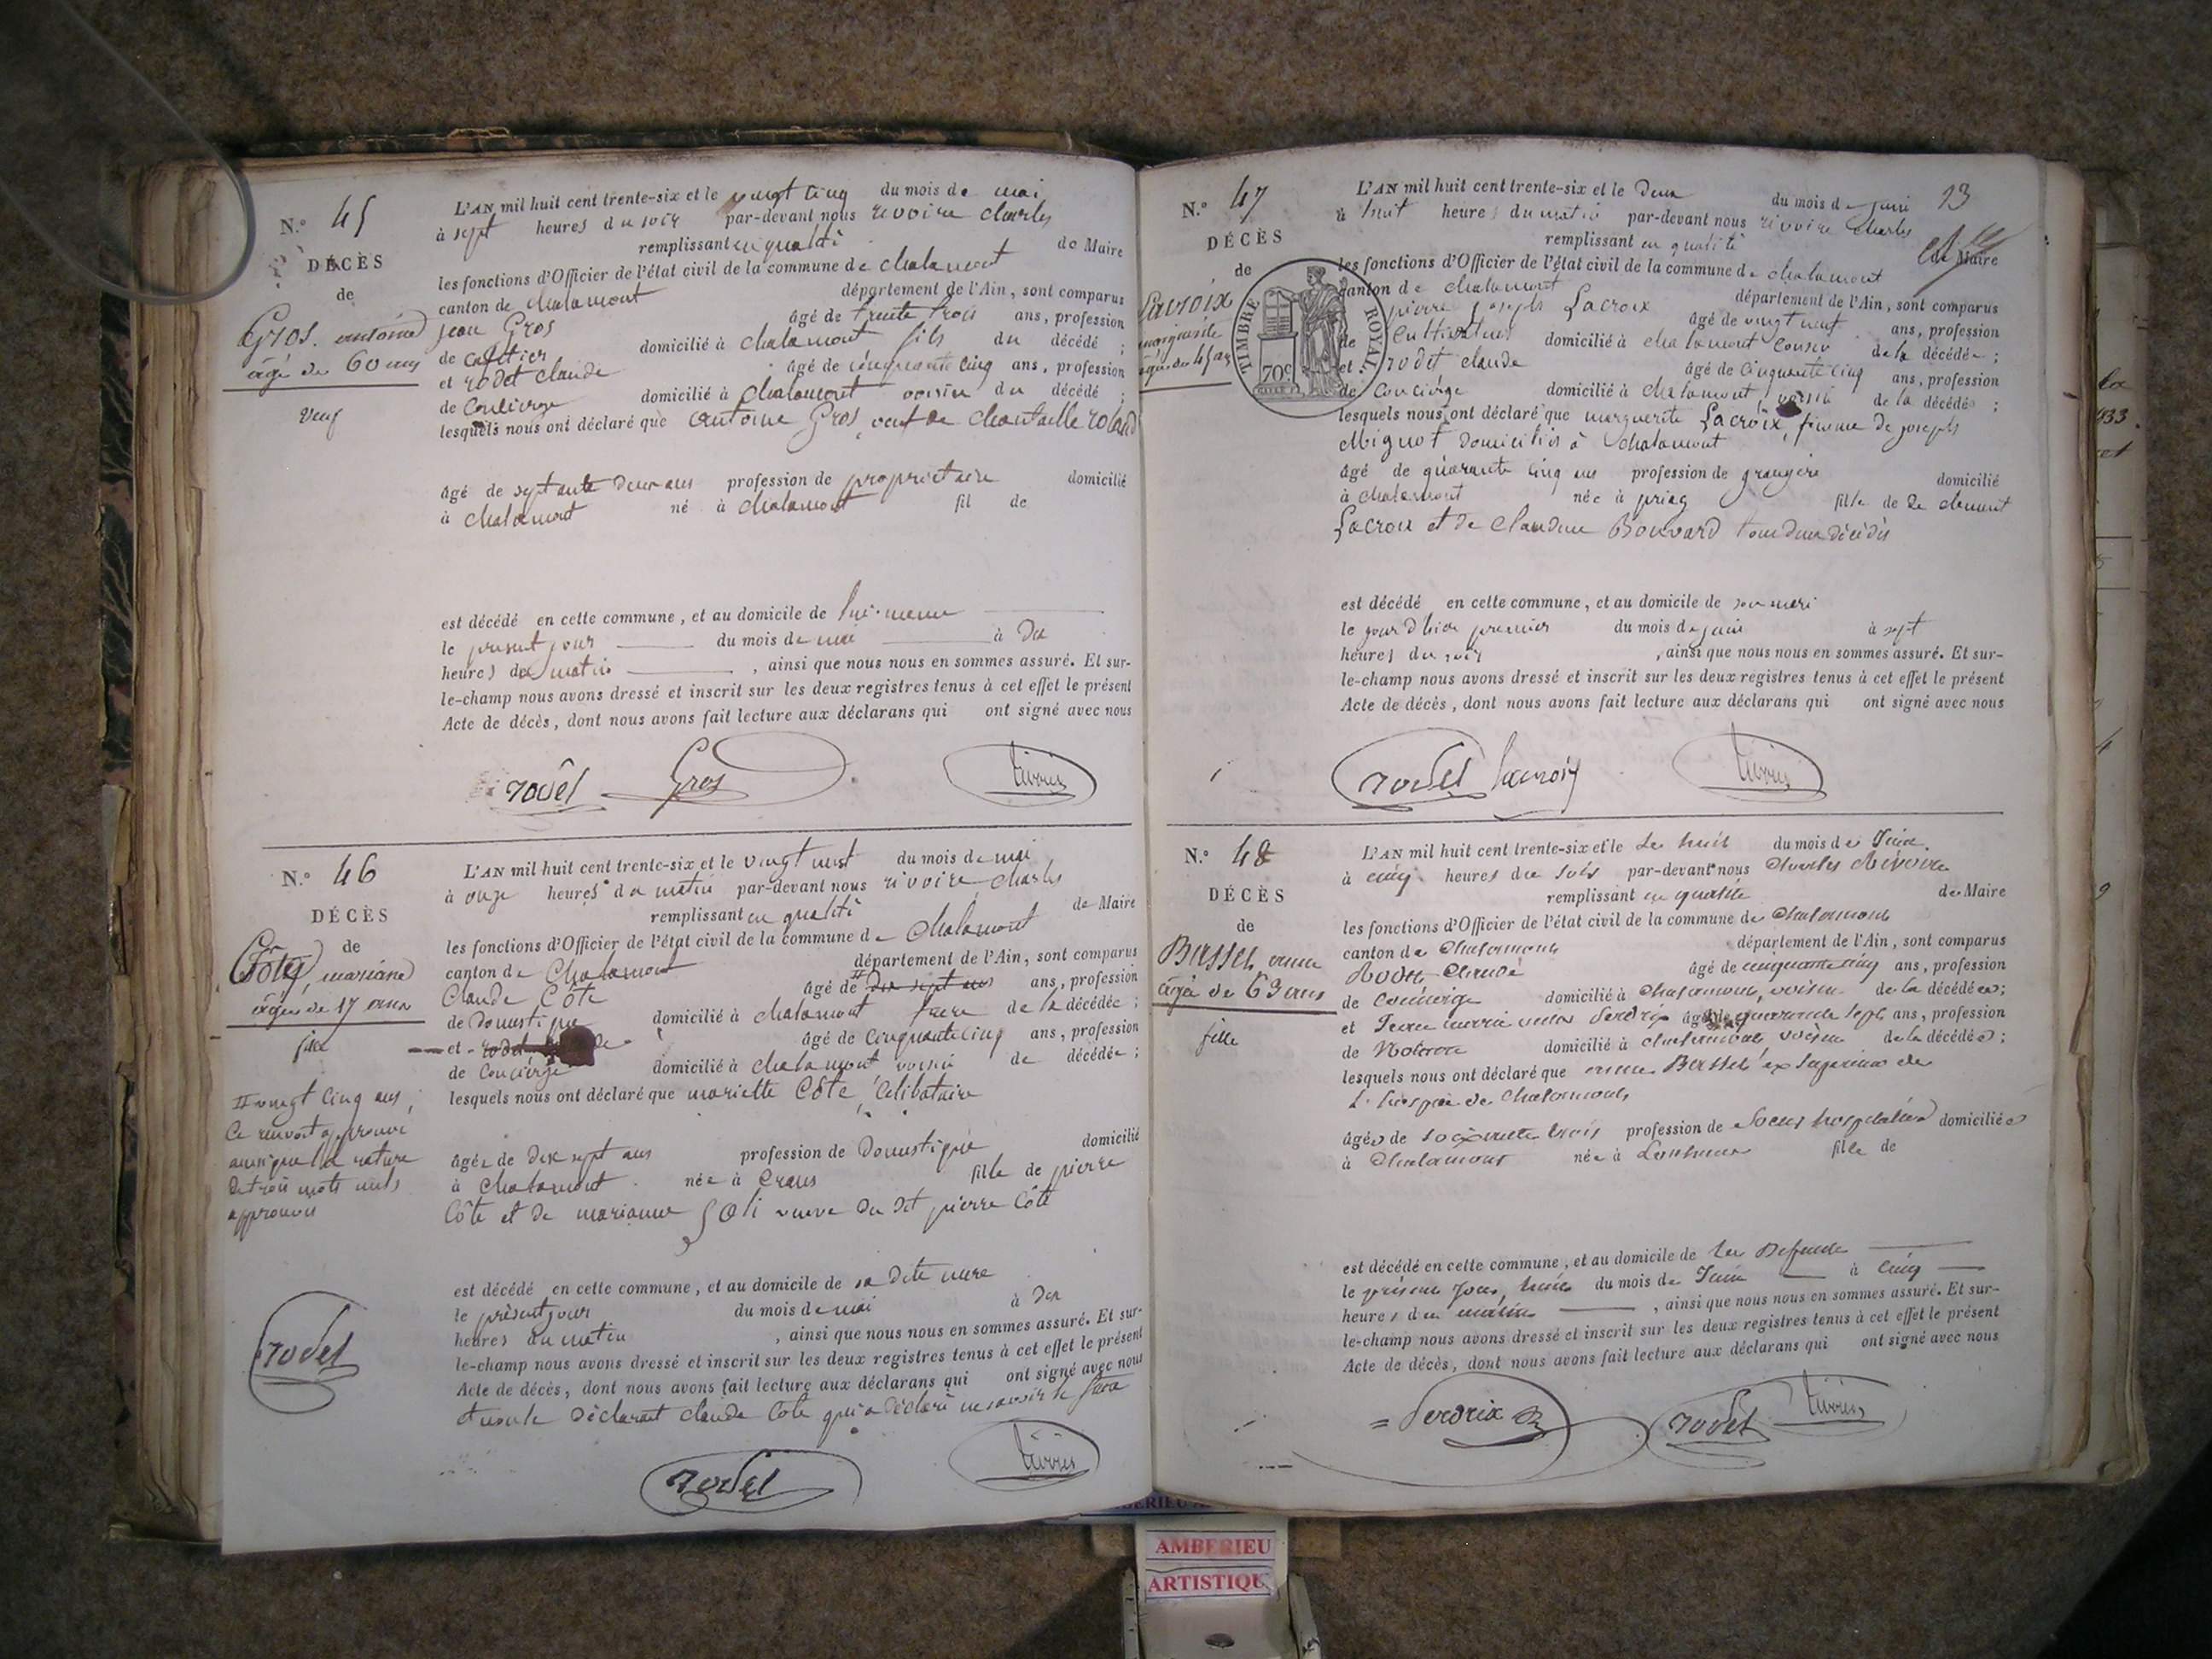 N.° 45
DÉCÈS
de
Gros. antoine
âgé de 60 ans
veuf
L'AN mil huit cent trente-six et le vingt cinq du mois de mai
à sept heures du soir par-devant nous rivoire charles
remplissant en qualité de Maire
les fonctions d'Officier de l'état civil de la commune de chalamont
canton de chalamont département de l'Ain, sont comparus
jean Gros âgé de trente trois ans, profession
de domicilié à chalamont fils du décédé ;
et rodet claude âgé de cinquante cinq ans, profession
de Concierge domicilié à chalamont voisin du décédé ;
lesquels nous ont déclaré que antoine Gros, veuf de
âgé de septante deux ans profession de propriétaire domicilié
à chalamont né à chalamont fil de
est décédé en cette commune, et au domicile de lui-meme
le present jour du mois de mai à dix
heures du matin , ainsi que nous nous en sommes assuré. Et sur-
le-champ nous avons dressé et inscrit sur les deux registres tenus à cet effet le présent
Acte de décès, dont nous avons fait lecture aux déclarans qui ont signé avec nous
rodet Gros
N.° 46
DÉCÈS
de
Côte, mariane
âgée de 17 ans
fille
II vingt cinq ans,
Ce renvoit approuvé
ainsi que la rature
de trois mots nuls
approuvés
rodet
L'AN mil huit cent trente-six et le vingt neuf du mois de mai
à onze heures du matin par-devant nous rivoire charles
remplissant en qualité de Maire
les fonctions d'Officier de l'état civil de la commune de chalamont
canton de Chalamont département de l'Ain, sont comparus
Claude Côte âgé de II dix sept ans ans, profession
de Domestique domicilié à chalamont frere de la décédée ;
et âgé de Cinquante cinq ans, profession
de Concierge domicilié à chalamont voisin de décédée ;
lesquels nous ont déclaré que mariette Côte, Celibataire
âgée de dix sept ans profession de Domestique domicilié
à chalamont née à Crans fille de pierre
Côte et de marianne veuve du dit pierre Côte
est décédé en cette commune, et au domicile de sa dite mere
le présent jour du mois de mai à dix
heures du matin , ainsi que nous nous en sommes assuré. Et sur-
le-champ nous avons dressé et inscrit sur les deux registres tenus à cet effet le présent
Acte de décès, dont nous avons fait lecture aux déclarans qui ont signé avec nous
déclarant claude Cote qui a déclaré ne savoir le faire
rodet
13
N.° 47
DÉCÈS
de
Lacroix
marguerite
âgée de 45 ans
TIMBRE ROYAL
70c
L'AN mil huit cent trente-six et le deux du mois de juin
à huit heures du matin par-devant nous rivoire charles
remplissant en qualité de Maire
les fonctions d'Officier de l'état civil de la commune de chalamont
canton de chalamont département de l'Ain, sont comparus
pierre joseph Lacroix âgé de vingt neuf ans, profession
de Cultivateur domicilié à chalamont Cousin de la décédée ;
et rodet claude âgé de Cinquante cinq ans, profession
de Concierge domicilié à chalamont, voisin de la décédée ;
lesquels nous ont déclaré que marguerite Lacroix, femme de joseph
Mignot domiciliés à Chalamont
âgé de quarante cinq ans profession de grangère domicilié
à chalamont née à priay fille de clement
Lacroix et de Claudine Bouvard tous deux décédés
est décédé en cette commune, et au domicile de son mari
le jour d'hier premier du mois de juin à sept
heures du soir , ainsi que nous nous en sommes assuré. Et sur-
le-champ nous avons dressé et inscrit sur les deux registres tenus à cet effet le présent
Acte de décès, dont nous avons fait lecture aux déclarans qui ont signé avec nous
rodet Lacroix
N.° 48
DÉCÈS
de
anne
âgée de 63 ans
fille
L'AN mil huit cent trente-six et le huit du mois de Juin
à cinq heures du soir par-devant nous Charles Rivoire
remplissant en qualité de Maire
les fonctions d'Officier de l'état civil de la commune de Chalamont
canton de Chalamont département de l'Ain, sont comparus
Rodet Claude âgé de cinquante cinq ans, profession
de Concierge domicilié à Chalamont, voisin de la décédée ;
et Jean marie âgé de quarante sept ans, profession
de Notaire domicilié à chalamont, voisin de la décédée ;
lesquels nous ont déclaré que anne ex Superieure de
l'hospice de Chalamont
âgée de soixante trois profession de Soeur hospitalière domiciliée
à Chalamont née à fille de
est décédé en cette commune, et au domicile de La Defunte
le présent jour, huit du mois de Juin à Cinq
heures du matin , ainsi que nous nous en sommes assuré. Et sur-
le-champ nous avons dressé et inscrit sur les deux registres tenus à cet effet le présent
Acte de décès, dont nous avons fait lecture aux déclarans qui ont signé avec nous
Perdrix rodet
AMBERIEU
ARTISTIQUE